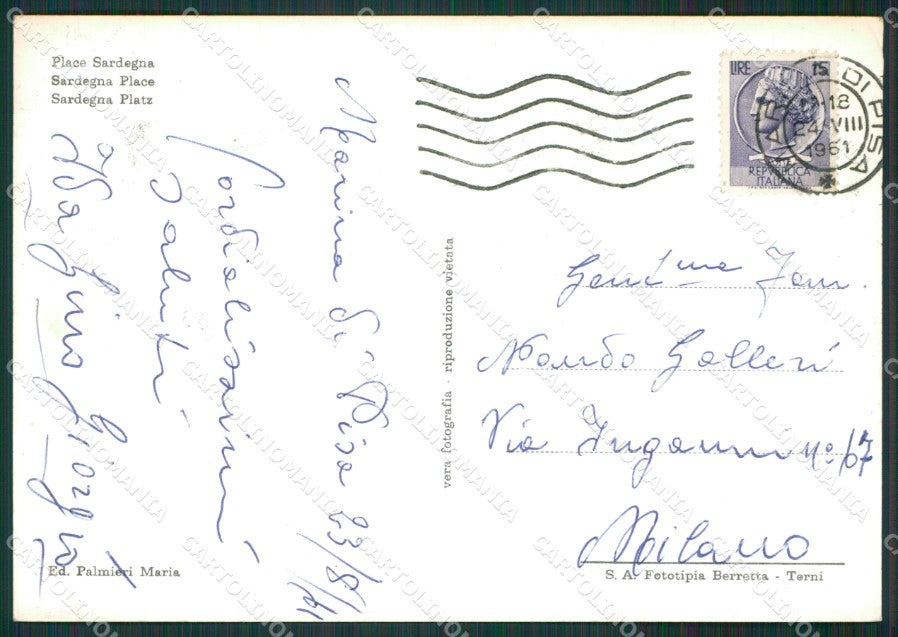 Place Sardegna
Sardegna Place
Sardegna Platz
Marina di Pisa 23/8/61
Cordialissimi
saluti
Giorgio
Ed. Palmieri Maria
vera fotografia - riproduzione vietata
LIRE 15
REPVBBLICA
ITALIANA
DI PISA
-18
24 VIII
1961
Gent.ma Fam.
Nando Galleri
Via Inganni n° 67
Milano
S. A. Fototipia Berretta - Terni
CARTOLINOMANIA